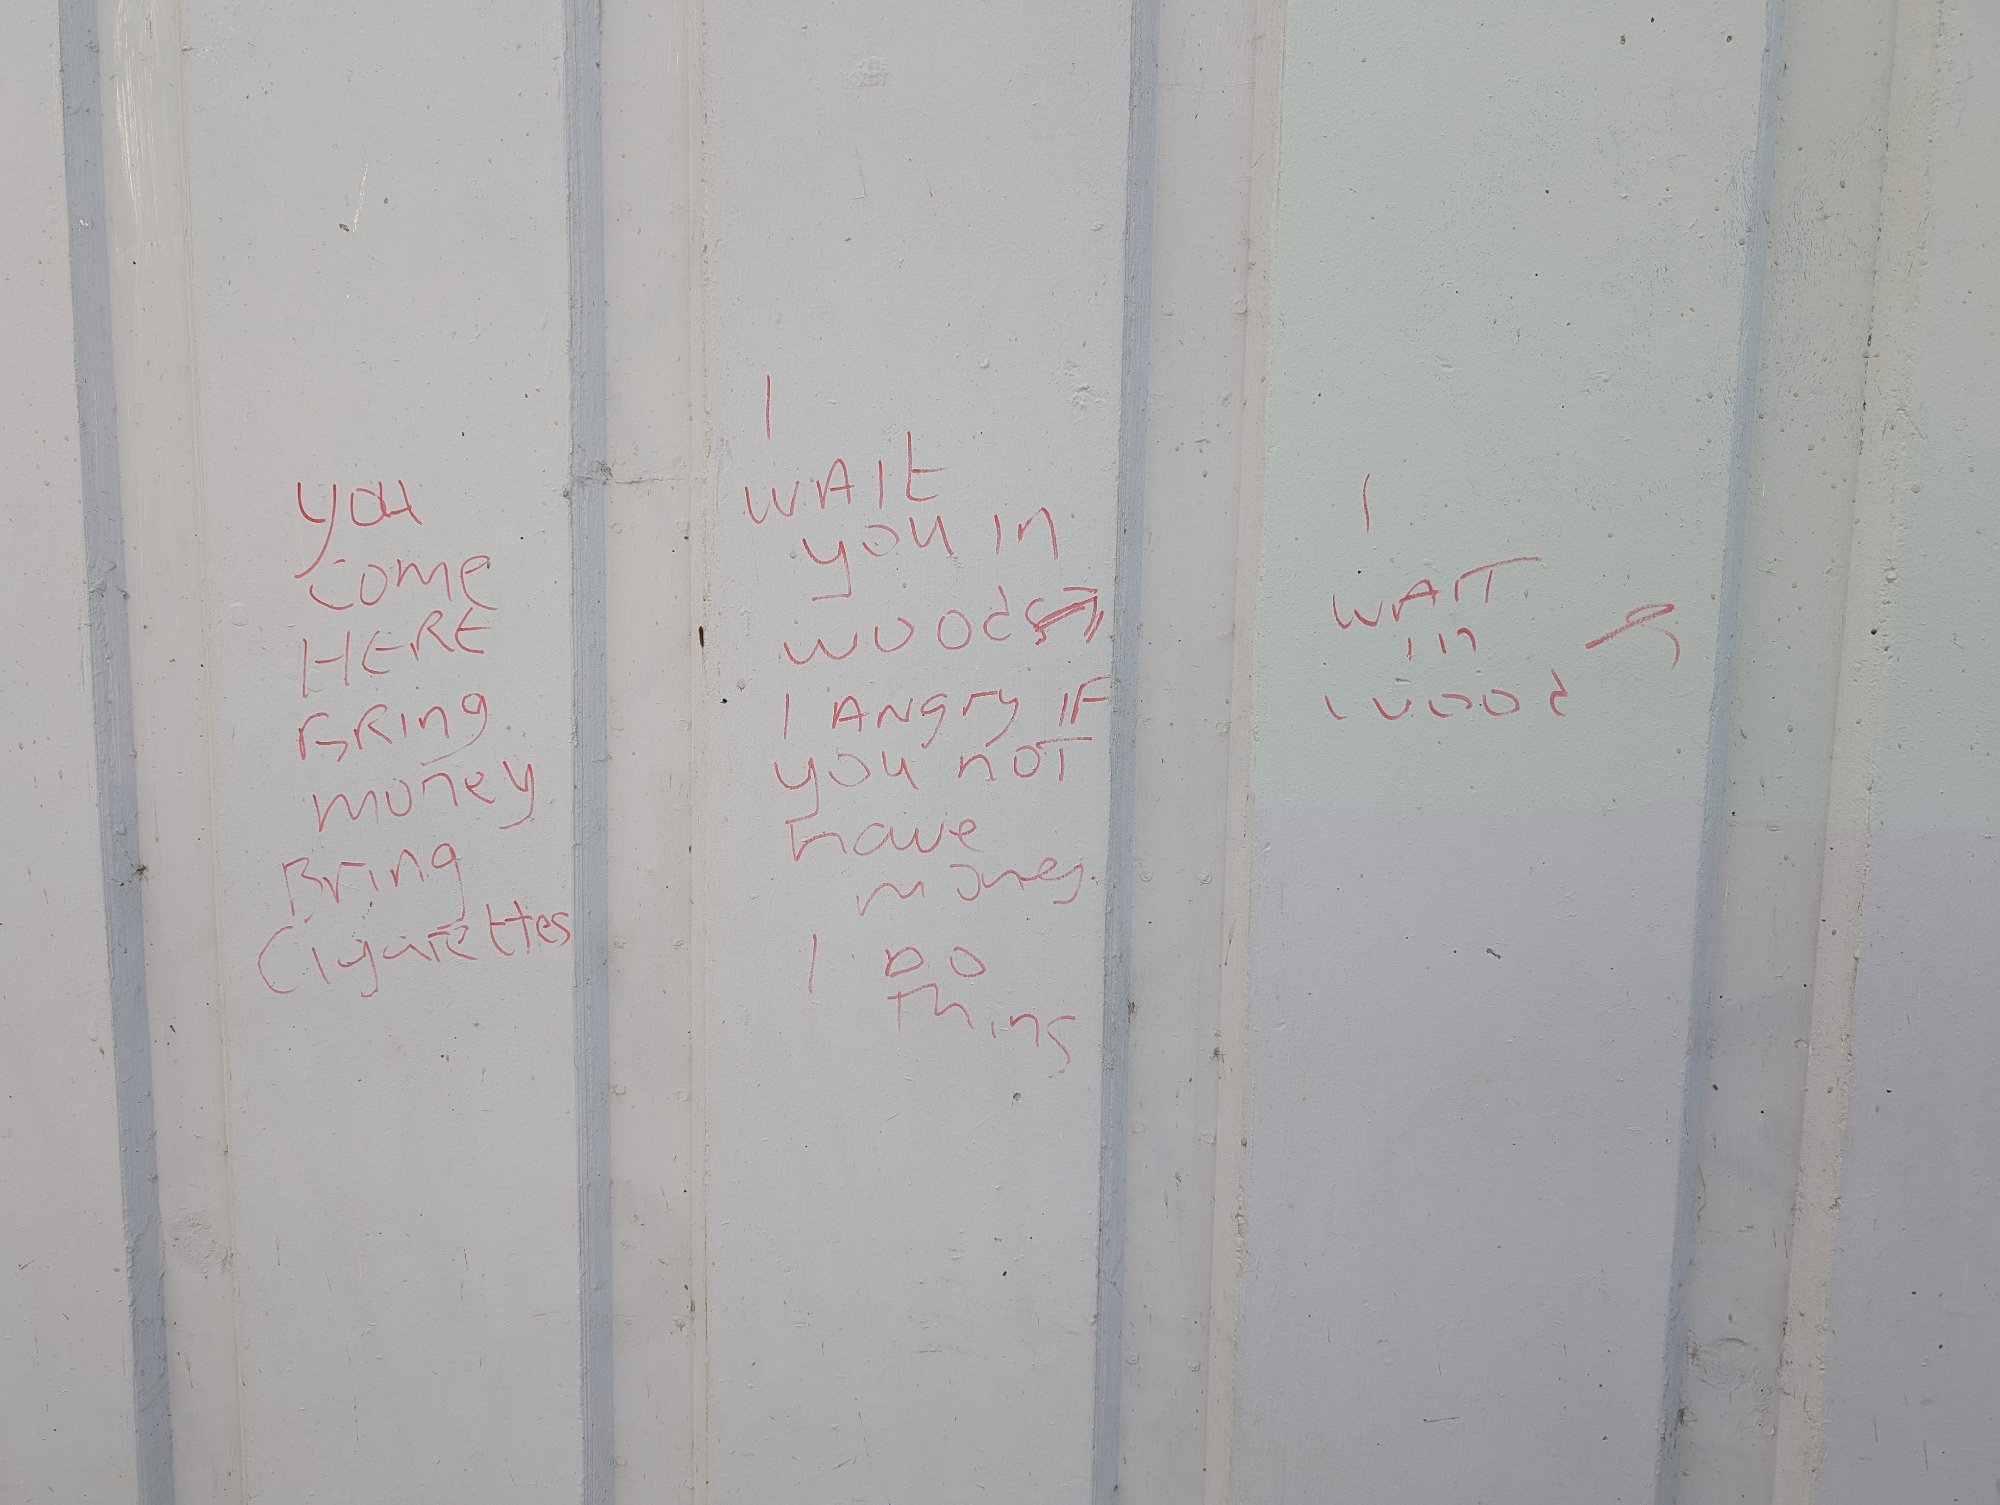 you
come
HERE
BRing
money
Bring
Cigarettes
I
WAIt
you in
wood
I ANgry IF
you nOT
have
money.
I DO
Thing
I
WAIT
in
wood